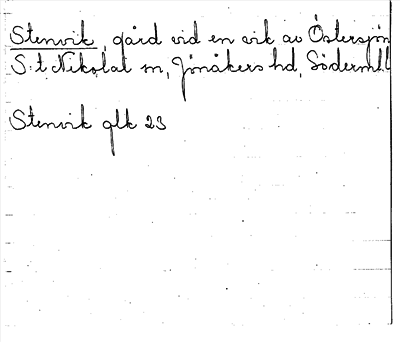 Stenvik, gård vid en vik av Östersjön
S:t Nikolai sn, Jönåkers hd, Söderml
Stenvik glk 23